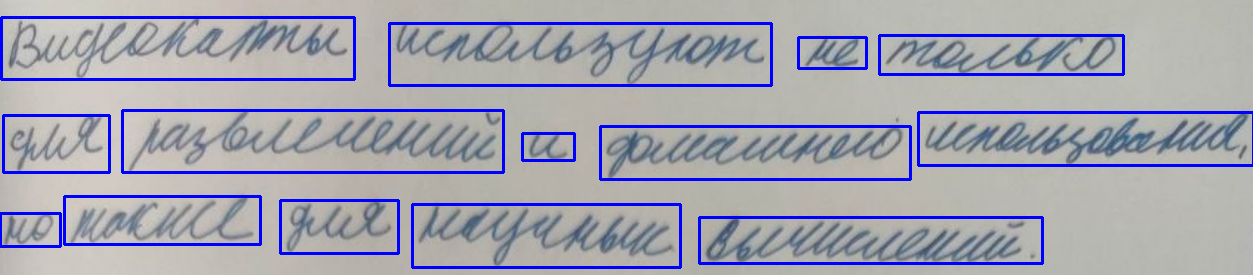 Видеокапты используют не только
для развлечений и домашнего использования,
но также для научнык вычислений.